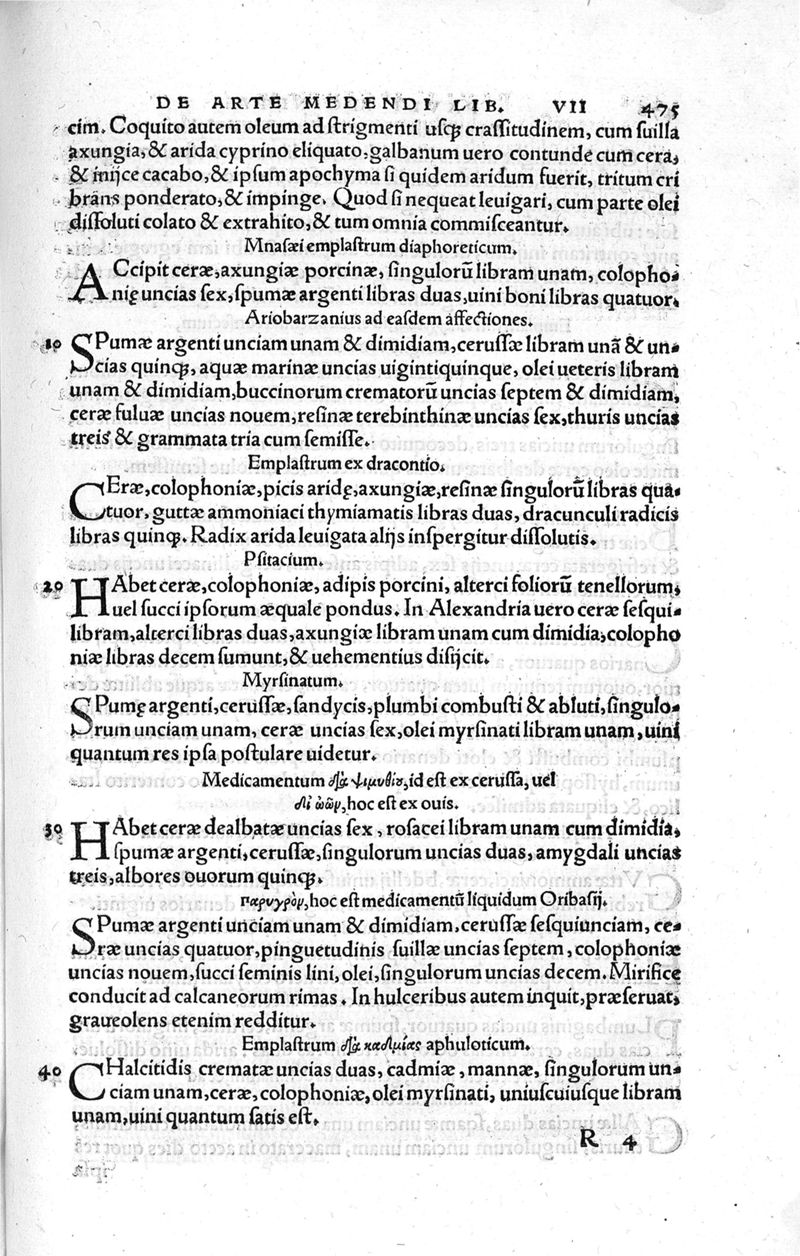 DE ARTE MEDENDI LIB. VII 475
cim. Coquito autem oleum ad strigmenti usq; crassitudinem, cum suilla
axungia, & arida cyprino eliquato, galbanum uero contunde cum cera,
& inijce cacabo, & ipsum apochyma si quidem aridum fuerit, tritum cri
brans ponderato, & impinge. Quod si nequeat leuigari, cum parte olei
dissoluti colato & extrahito, & tum omnia commisceantur.
Mnasæi emplastrum diaphoreticum.
ACcipit ceræ, axungiæ porcinæ, singulorũ libram unam, colopho-
nię uncias sex, spumæ argenti libras duas, uini boni libras quatuor.
Ariobarzanius ad easdem affectiones.
10 SPumæ argenti unciam unam & dimidiam, cerussæ libram unã & un-
cias quinq;, aquæ marinæ uncias uigintiquinque, olei ueteris libram
unam & dimidiam, buccinorum crematorũ uncias septem & dimidiam,
ceræ fuluæ uncias nouem, resinæ terebinthinæ uncias sex, thuris uncias
treis & grammata tria cum semisse.
Emplastrum ex dracontio.
CEræ, colophoniæ, picis aridę, axungiæ, resinæ singulorũ libras qua-
tuor, guttæ ammoniaci thymiamatis libras duas, dracunculi radicis
libras quinq;. Radix arida leuigata alijs inspergitur dissolutis.
Psitacium.
20 HAbet ceræ, colophoniæ, adipis porcini, alterci foliorũ tenellorum,
uel succi ipsorum æquale pondus. In Alexandria uero ceræ sesqui-
libram, alterci libras duas, axungiæ libram unam cum dimidia, colopho
niæ libras decem sumunt, & uehementius disijcit.
Myrsinatum.
SPumę argenti, cerussæ, sandycis, plumbi combusti & abluti, singulo-
rum unciam unam, ceræ uncias sex, olei myrsinati libram unam, uini
quantum res ipsa postulare uidetur.
Medicamentum διὰ ψιμυθίου, id est ex cerussa, uel
δι ὠῶν, hoc est ex ouis.
30 HAbet ceræ dealbatæ uncias sex, rosacei libram unam cum dimidia,
spumæ argenti, cerussæ, singulorum uncias duas, amygdali uncias
treis, albores ouorum quinq;.
παρυγρὸν, hoc est medicamentũ liquidum Oribasij.
SPumæ argenti unciam unam & dimidiam, cerussæ sesquiunciam, ce-
ræ uncias quatuor, pinguetudinis suillæ uncias septem, colophoniæ
uncias nouem, succi seminis lini, olei, singulorum uncias decem. Mirifice
conducit ad calcaneorum rimas. In hulceribus autem inquit, præseruat,
graueolens etenim redditur.
Emplastrum διὰ καδμίας aphuloticum.
40 CHalcitidis crematæ uncias duas, cadmiæ, mannæ, singulorum un-
ciam unam, ceræ, colophoniæ, olei myrsinati, uniuscuiusque libram
unam, uini quantum satis est.
R 4